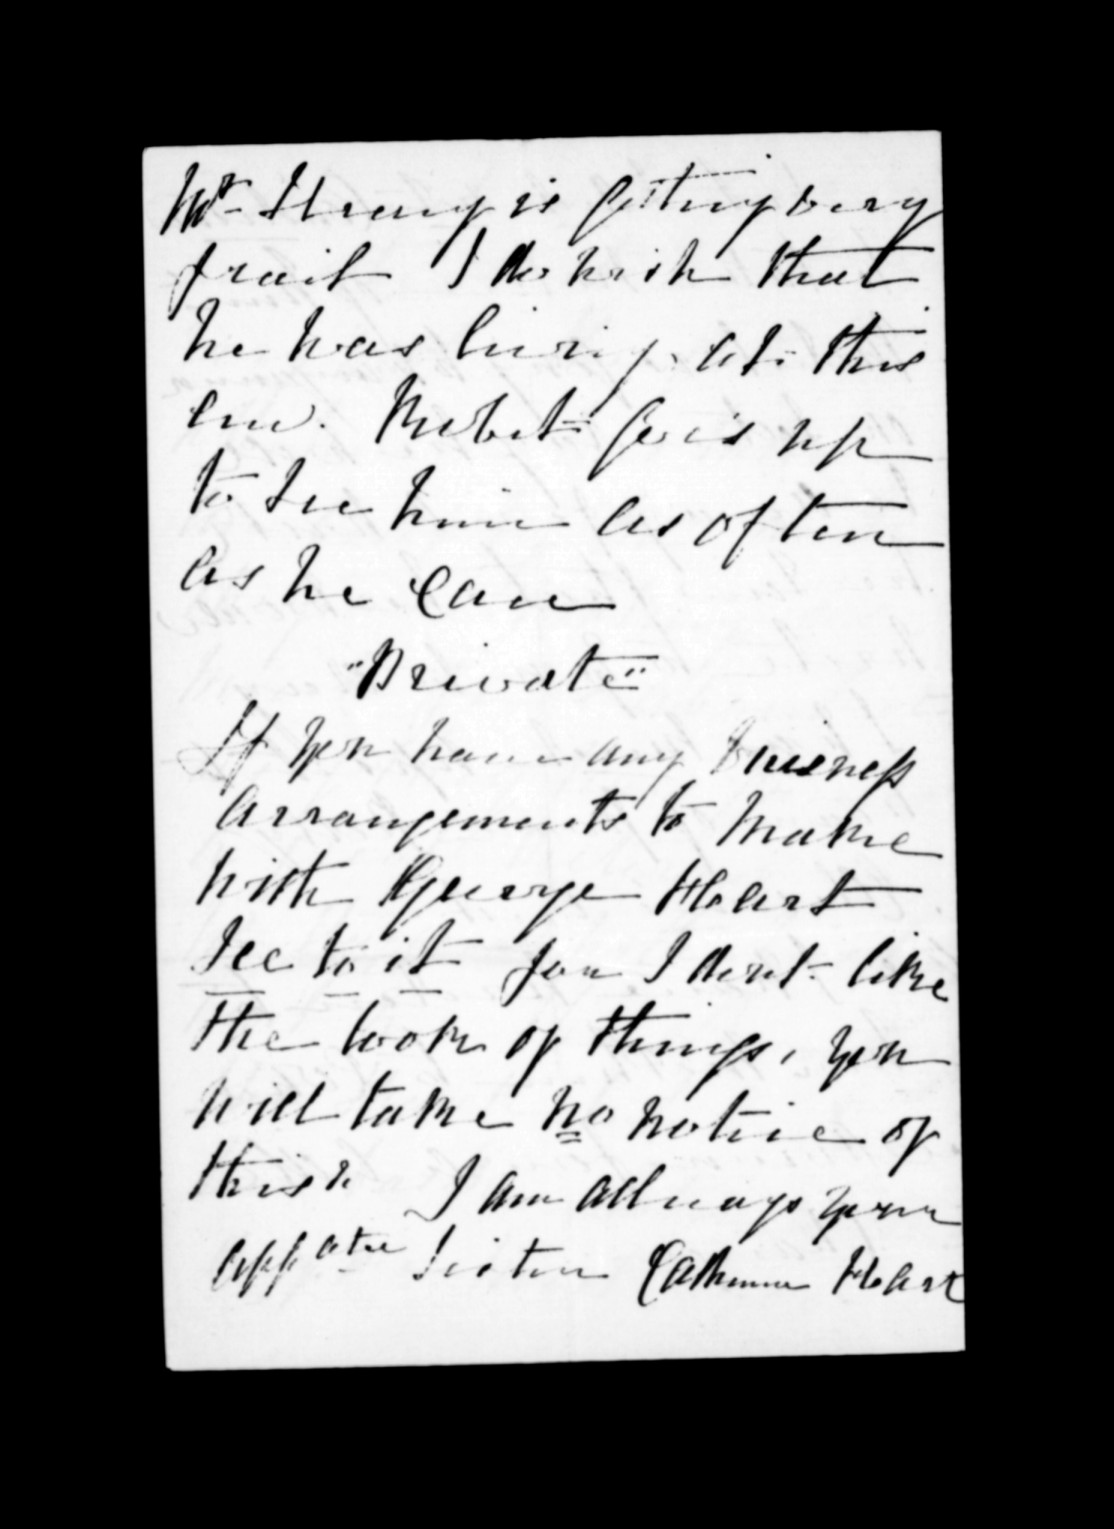 Mr Strang is getting very
frail I do wish that
he was living at this
end. Robert goes up
to see him as often
as he can
"Private"
If you have any buisness
arrangements to make
with George Heart
see to it for I dont like
the look of things, you
will take no notice of
this I am allways your
affate Sister Catherine Heart